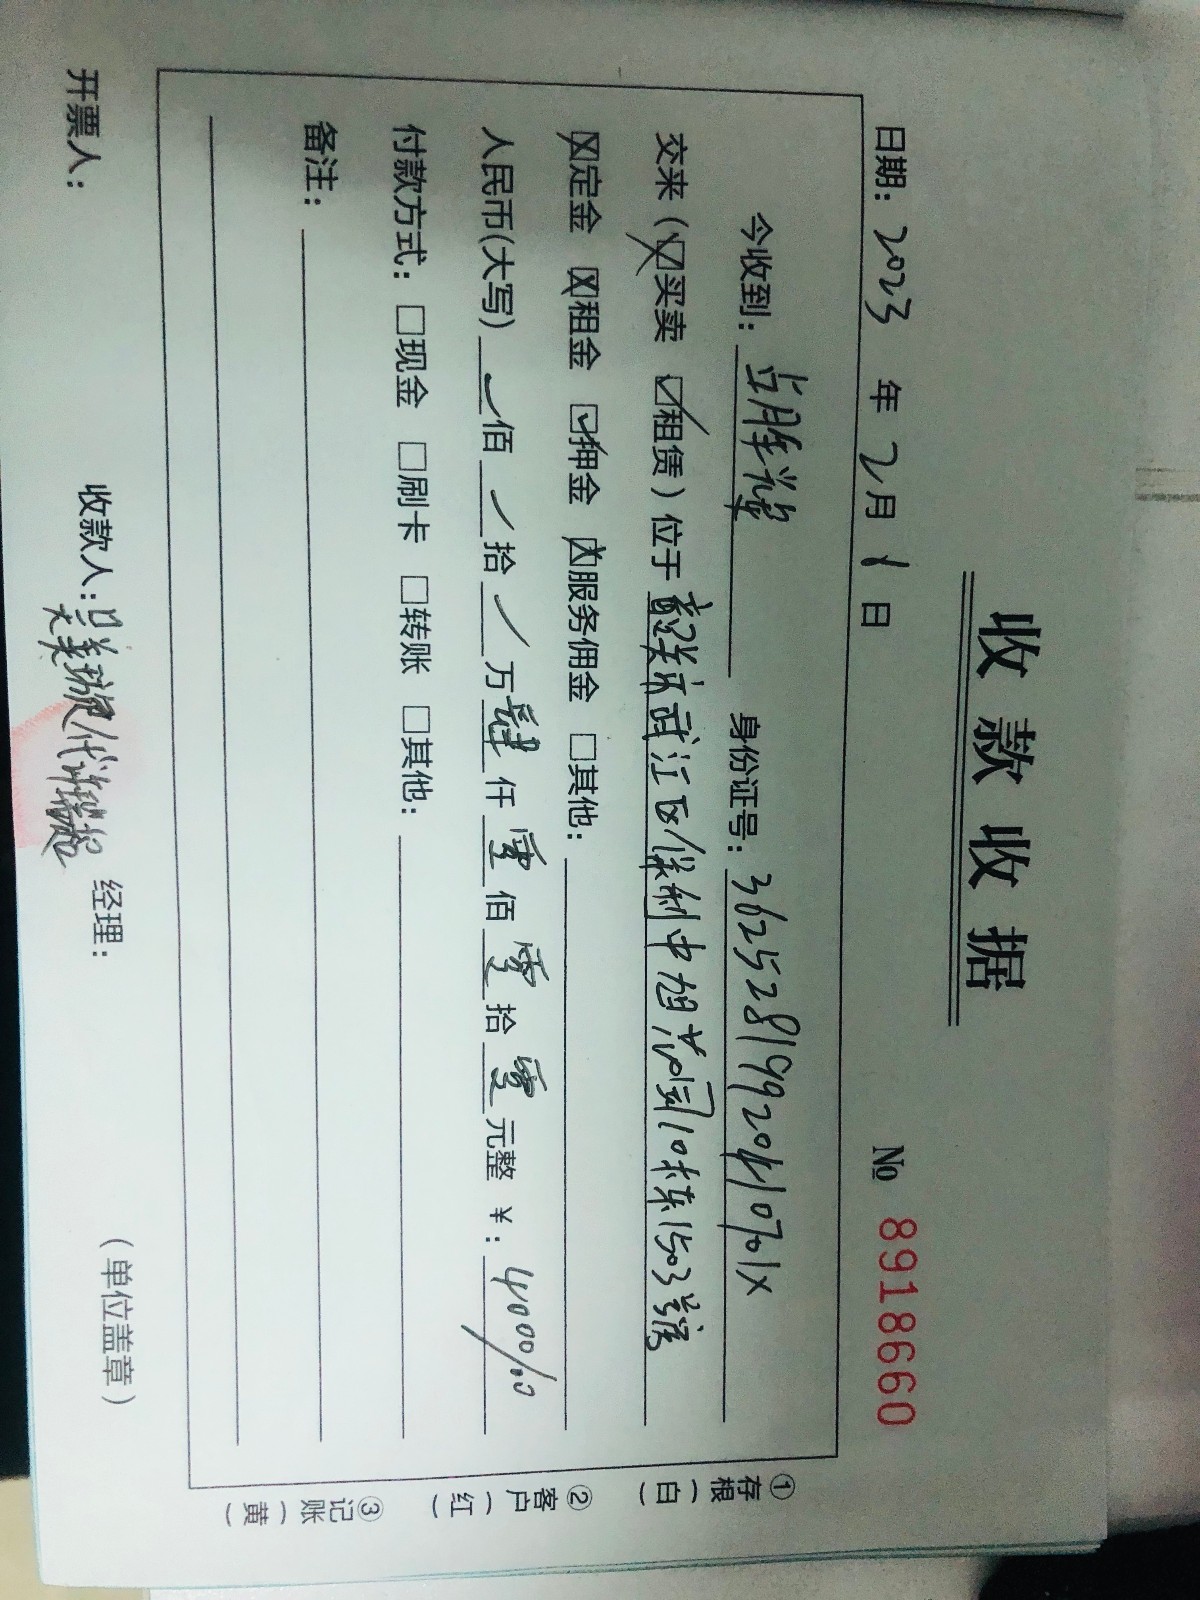 收款收据
日期：2023年2月1日 № 8918660
今收到： 身份证号：
交来（☒买卖 ☑租赁）位于韶关市武江区保利中旭 10栋1503号房
☒定金 ☒租金 ☑押金 ☒服务佣金 □其他：
人民币(大写) 佰 拾 万肆仟零佰零拾零元整 ¥：4000/00
付款方式：□现金 □刷卡 □转账 □其他：
备注：
开票人： 收款人： 经理： （单位盖章）
①存根（白）
②客户（红）
③记账（黄）